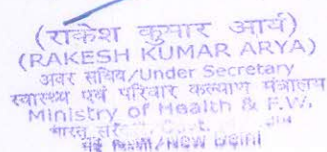 (राकेश कुमार आर्य)
(RAKESH KUMAR ARYA)
अवर सचिव/Under Secretary
स्वास्थ्य एवं परिवार कल्याण मंत्रालय
Ministry of Health & F.W.
भारत Govt.
नई दिल्ली/New Delhi